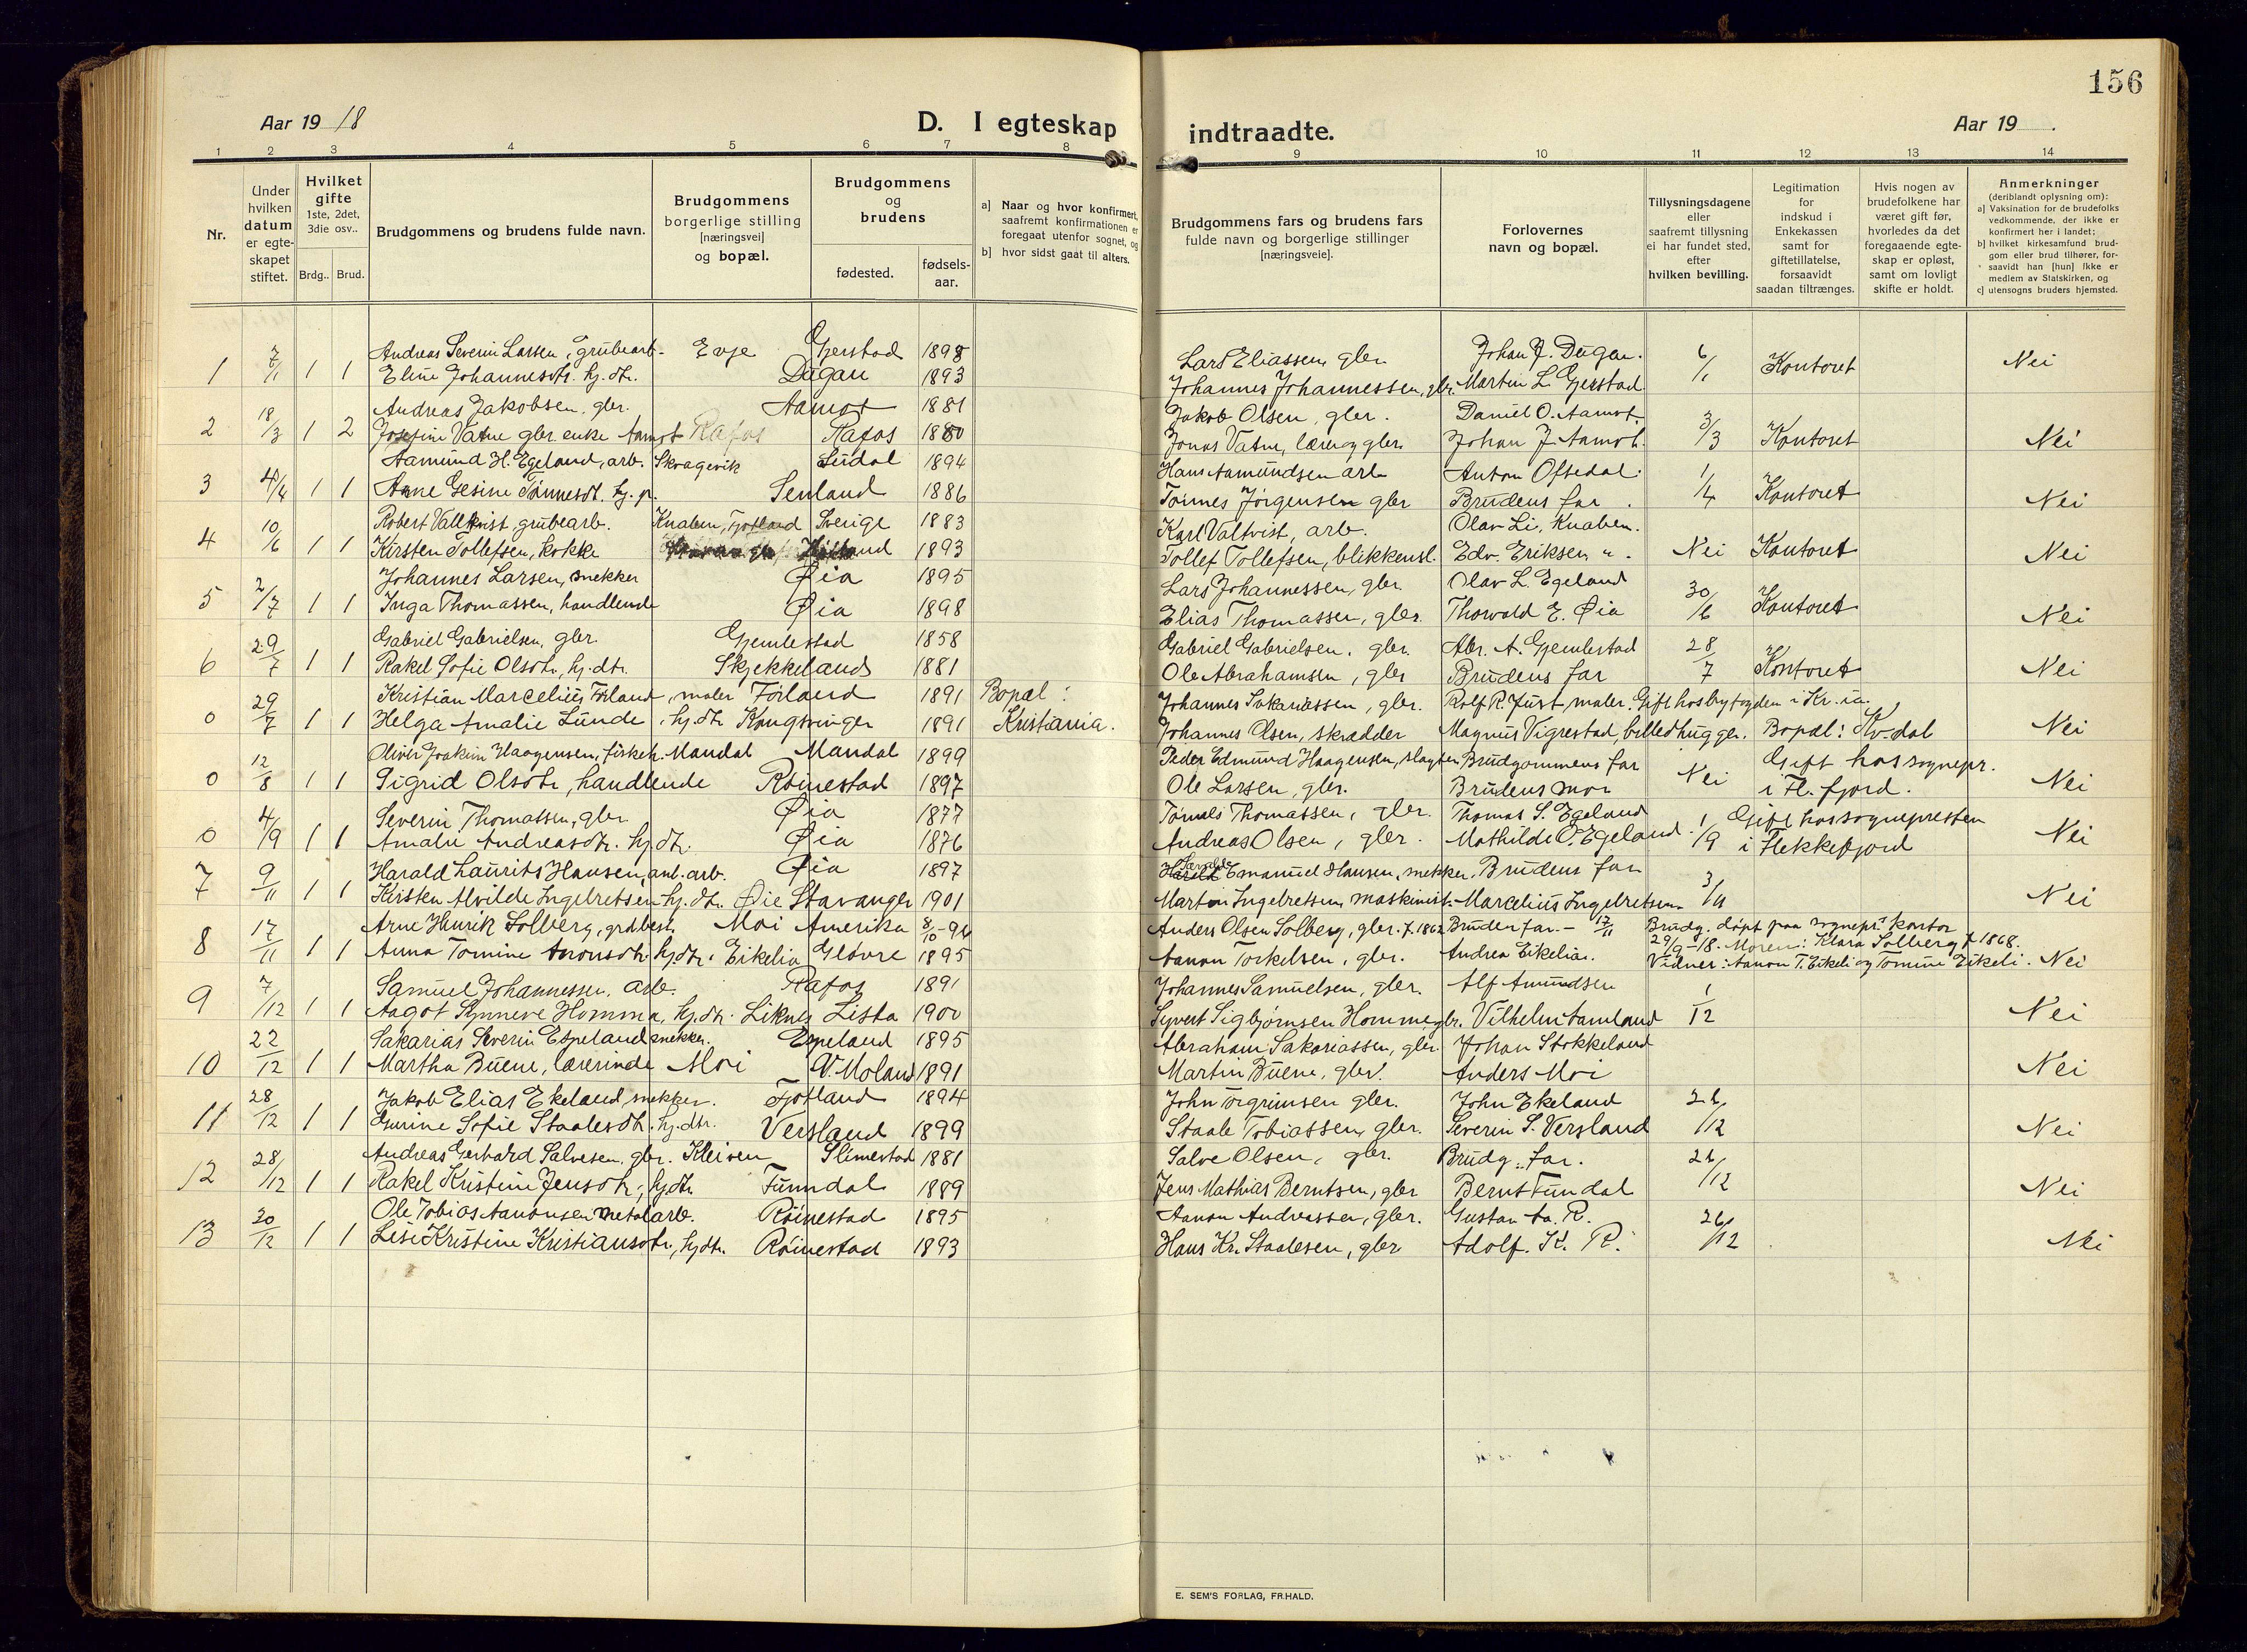 156
Aar 19 18
D. I egteskap indtraadte.
Aar 19 .
1 2 3 4 5 6 7 8 9 10 11 12 13 14
Nr.
Under hvilken datum er egteskapet stiftet.
Hvilket gifte 1ste, 2det, 3die osv..
Brdg.. Brud.
Brudgommens og brudens fulde navn.
Brudgommens borgerlige stilling [næringsvei] og bopæl.
Brudgommens og brudens
fødested.
fødsels-aar.
a] Naar og hvor konfirmert, saafremt konfirmationen er foregaat utenfor sognet, og
b] hvor sidst gaat til alters.
Brudgommens fars og brudens fars fulde navn og borgerlige stillinger [næringsveie].
Forlovernes navn og bopæl.
Tillysningsdagene eller saafremt tillysning ei har fundet sted, efter hvilken bevilling.
Legitimation for indskud i Enkekassen samt for giftetillatelse, forsaavidt saadan tiltrænges.
Hvis nogen av brudefolkene har været gift før, hvorledes da det foregaaende egteskap er opløst, samt om lovligt skifte er holdt.
Anmerkninger (deriblandt oplysning om):
a] Vaksination for de brudefolks vedkommende, der ikke er konfirmert her i landet;
b] hvilket kirkesamfund brudgom eller brud tilhører, forsaavidt han [hun] ikke er medlem av Statskirken, og
c] utensogns bruders hjemsted.
Andreas Severin Larsen, grubearb. Evje Gjerstad 1898 Lars Eliassen, gbr. Johan J. Dugan.
1 7/1 1 1 Eline Johannesdtr. hj. dtr. Dugan 1893 Johannes Johannessen, gbr. Martin L. Gjerstad. 6/1 Kontoret Nei
Andreas Jakobsen, gbr. Aamot 1881 Jakob Olsen, gbr. Daniel O. Aamot.
2 18/3 1 2 Josefine Vatne gbr. enke Aamot Rafos Rafos 1880 Jonas Vatne, lærer og gbr. Johan J. Aamot. 3/3 Kontoret Nei
Aamund H. Egeland, arb. Skragevik Sudal 1894 Hans Aamundsen arb. Anton Ofsedal.
3 4/4 1 1 Anne Gesine Tønnesdt. hj. p. Senland 1886 Tønnes Jørgensen gbr Brudens far. 1/4 Kontoret Nei
Robert Valtkvist, grubearb. Knaben, Fjotland Sverige 1883 Karl Valtvist, arb. Olav Li, Knaben.
4 10/6 1 1 Kirsten Tollefsen, kokke 1893 Tollef Tollefsen, blikkensl. Edv. Eriksen " . Nei Kontoret Nei
Johannes Larsen, snekker Øia 1895 Lars Johannessen, gbr. Olav L. Egeland
5 2/7 1 1 Inga Thomassen, handlende Øia 1898 Elias Thomassen, gbr. Thorvald E. Øia 30/6 Kontoret Nei
Gabriel Gabrielsen, gbr. Gjemlestad 1858 Gabriel Gabrielsen, gbr. Abr. A. Gjemlestad
6 29/7 1 1 Rakel Sofie Olsdtr. hj. dtr. Skjekkeland 1881 Ole Abrahamsen, gbr Brudens far 28/7 Kontoret Nei
Kristian Marcelius Førland, maler Førland 1891 Bopæl: Johannes Sakariassen, gbr. Rolf R. Furst, maler. Gift hos byfogden i Kr.ia.
0 29/7 1 1 Helga Amalie Lunde, hj. dtr Kongsvinger 1891 Kristiania. Johannes Olsen, skrædder Magnus Vigrestad, billedhugger. Bopæl: Kv-dal Nei
Oliver Joakim Haagensen, fiskeh. Mandal Mandal 1899 Peder Edmund Haagensen, slagter Brudgommens far Gift hos sognepr.
0 12/8 1 1 Sigrid Olsdtr, handlende Røinestad 1897 Ole Larsen, gbr. Brudens mor Nei i Fl. fjord. Nei
Severin Thomassen, gbr. Øia 1877 Tønnes Thomassen, gbr. Thomas S. Egeland
0 4/9 1 1 Amalie Andreasdtr. hj. dtr. Øia 1876 Andreas Olsen, gbr. Mathilde O. Egeland. 1/9 Gift hos sognepresten i Flekkefjord Nei
Harald Laurits Hansen, anl. arb. Øia 1897 Emanuel Hansen, snekker. Brudens far
7 9/11 1 1 Kirsten Alvilde Ingelretsen hj. dtr. Øie Stavanger 1901 Martin Ingelretsen, maskinist. Marcelius Ingelretsen. 3/11 Nei
Arne Henrik Solberg, grubest. Moi Amerika 8/10-94 Anders Olsen Solberg, gbr. f. 1862 Brudens far. - 17/11 Brudg. døpt paa sognepr. kontor
8 17/11 1 1 Anna Tomine Aronsdtr. hj. dtr. Eikelia Gløvre 1895 Aanon Torkelsen, gbr. Andrea Eikeliar. 29/9-18. Moren: Klara Solberg f. 1868. Vidner: Aanon T. Eikeli og Tomine Eikeli. Nei
Samuel Johannessen, arb. Rafos 1891 Johannes Samuelsen, gbr. Alf Amundsen
9 7/12 1 1 Aagot Synneve Homma, hj. dtr. Liknes Lista 1900 Syvert Sigbjørnsen Homme, gbr. Vilhelm Aamland 1/12 Nei
Sakarias Severin Espeland snekker. Espeland 1895 Abraham Sakariassen, gbr. Johan Stokkeland
10 22/12 1 1 Martha Buene, lærerinde Moi V. Moland 1891 Martin Buene, gbr. Anders Moi Nei
Jakob Elias Ekeland, snekker. Fjotland 1894 John Torgrimsen gbr. John Ekeland
11 28/12 1 1 Gurine Sofie Staalesdtr. hj. dtr. Versland 1899 Staale Tobiassen, gbr. Severin S. Versland 26/12 Nei
Andreas Gerhard Salvesen, gbr. Kleiven Slimestad 1881 Salve Olsen, gbr. Brudg. far.
12 28/12 1 1 Rakel Kristine Jensdtr, hj dtr. Funndal 1889 Jens Mathias Berntsen, gbr Bernt Fundal 26/12 Nei
Ole Tobias Aanonsen metalarb. Røinestad 1895 Aanon Andreassen, gbr. Gustav Aa. R.
13 30/12 1 1 Lise Kristine Kristiansdtr, hj dtr. Røinestad 1893 Hans Kr. Staalesen, gbr Adolf. K. R. 26/12 Nei
E. SEM'S FORLAG, FR.HALD.